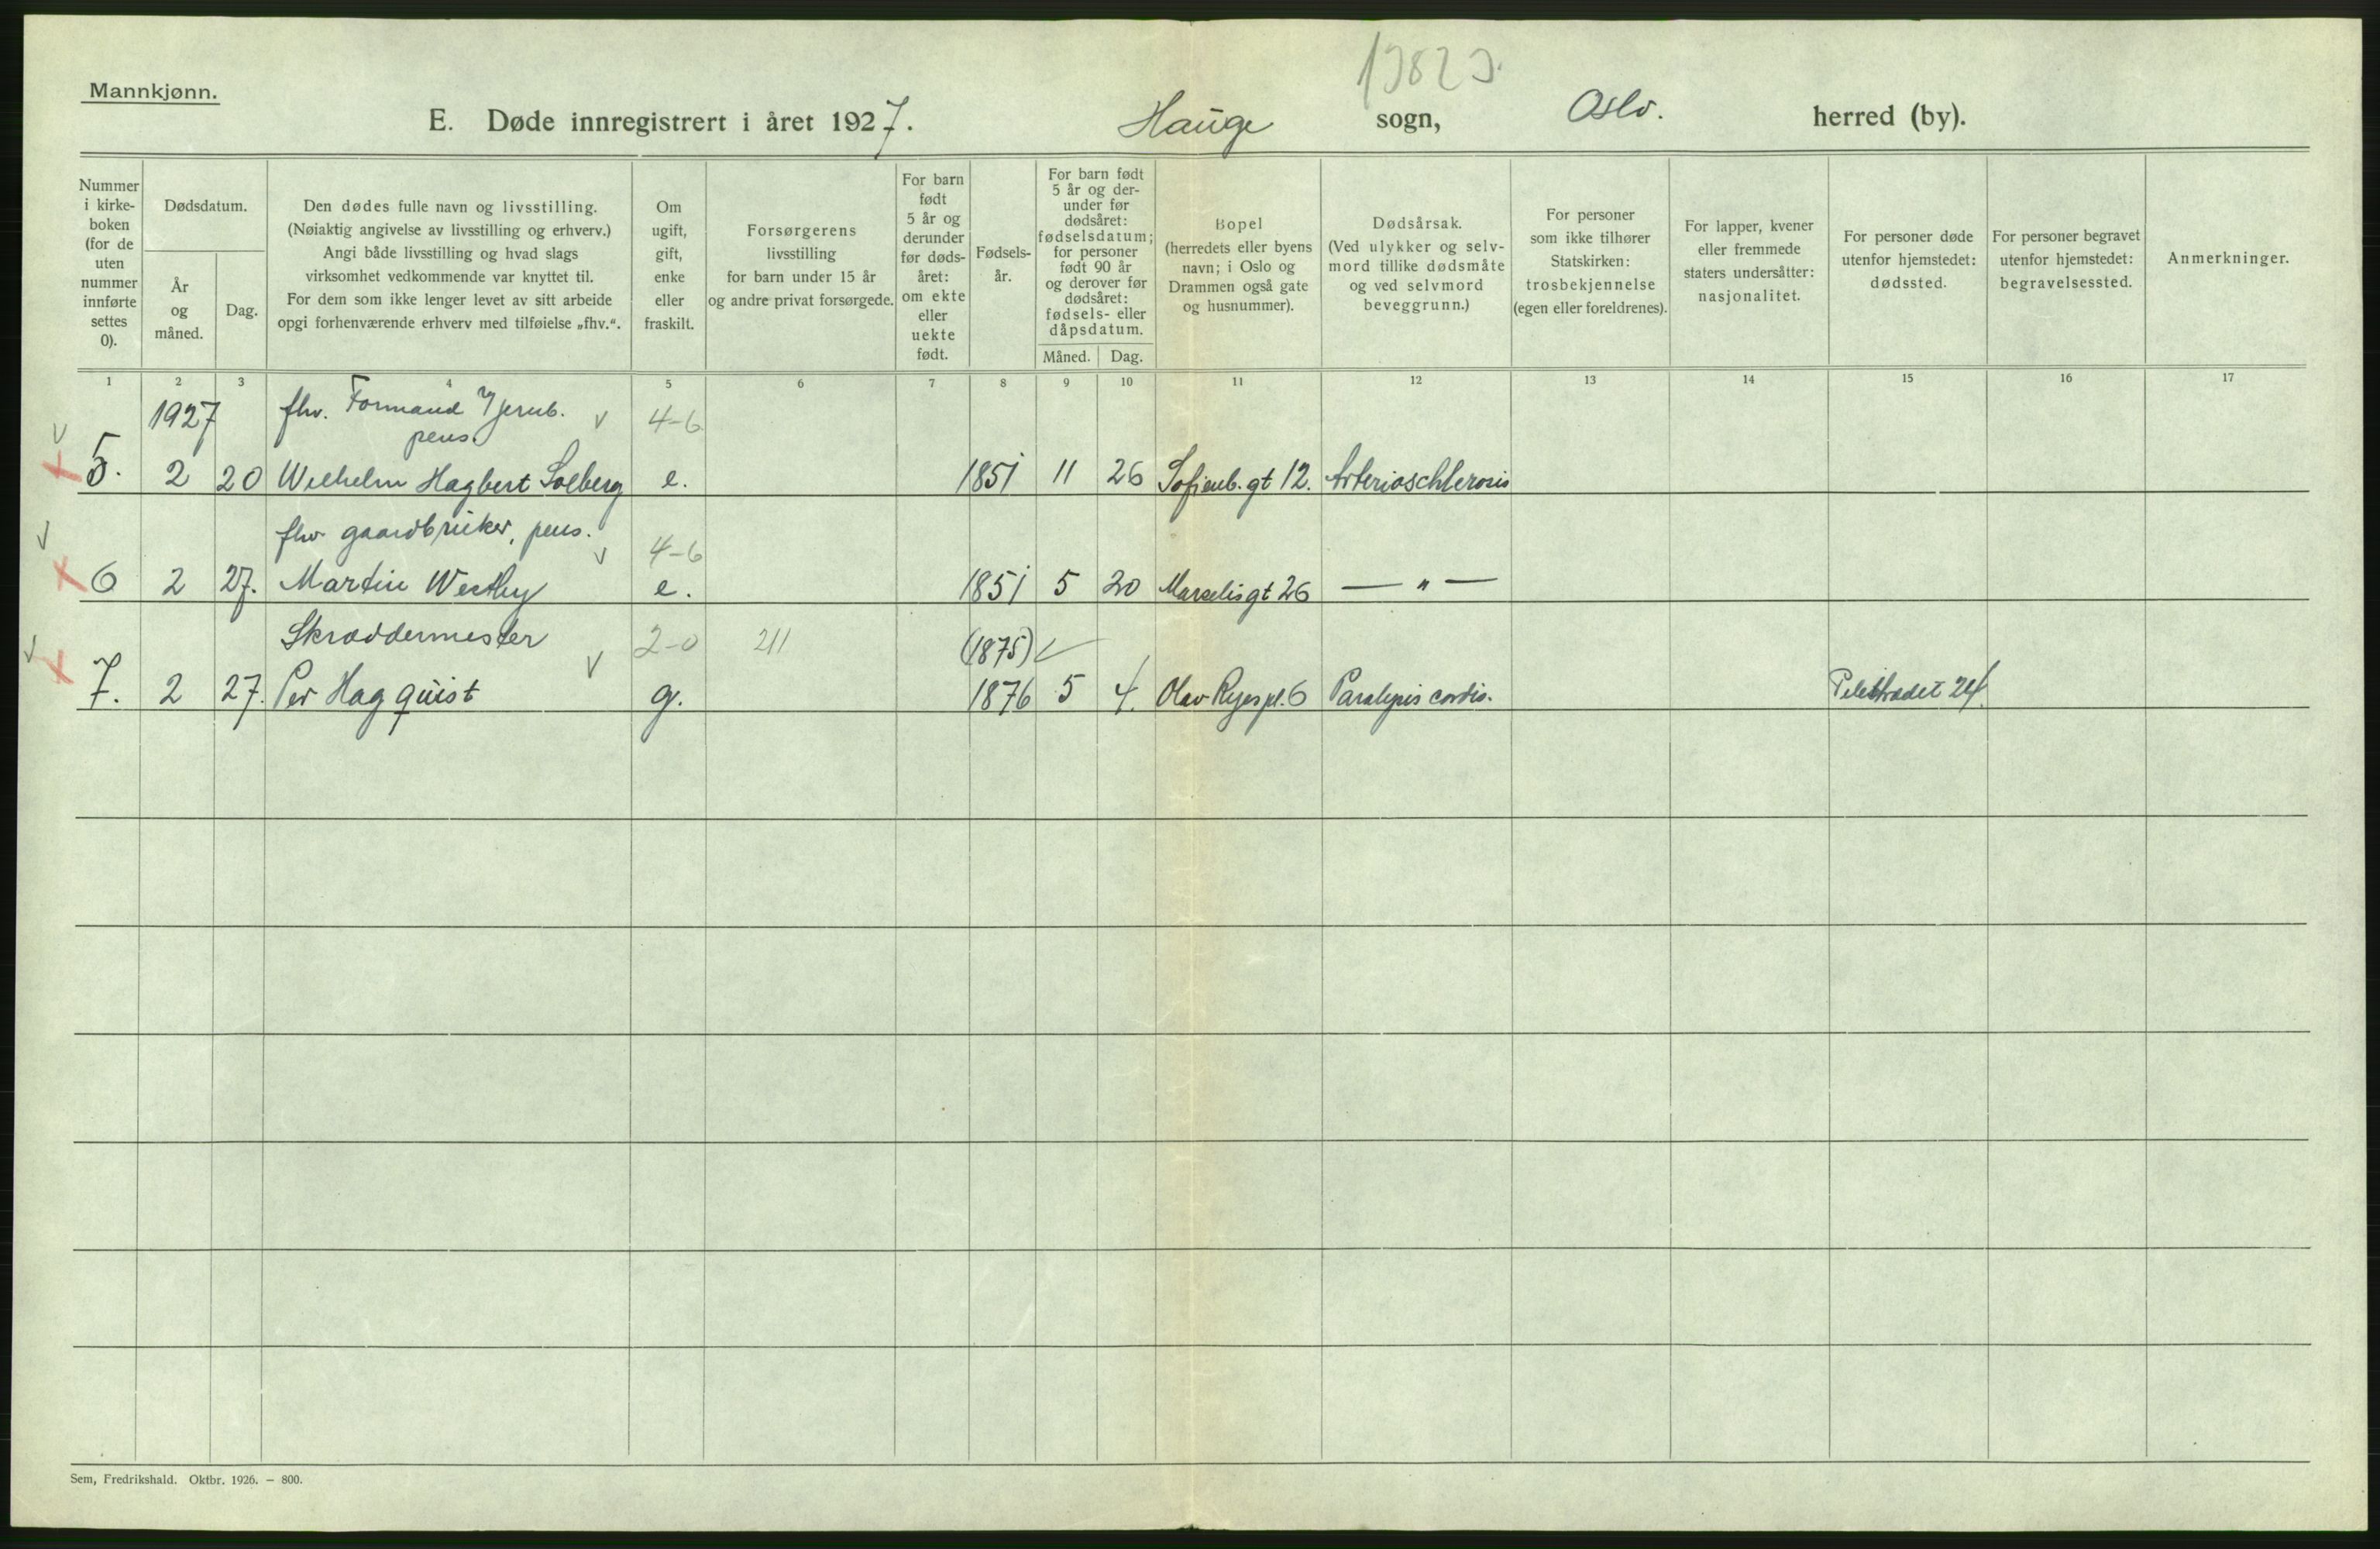 Mannkjønn.
E. Døde innregistrert i året 1927. Hauge sogn, Oslo. herred (by).
Nummer i kirkeboken (for de uten nummer innførte settes 0).
Dødsdatum.
År og måned.
Dag.
Den dødes fulle navn og livsstilling.
(Nøiaktig angivelse av livsstilling og erhverv.)
Angi både livsstilling og hvad slags
virksomhet vedkommende var knyttet til.
For dem som ikke lenger levet av sitt arbeide
opgi forhenværende erhverv med tilføielse „fhv.“.
Om ugift, gift, enke eller fraskilt.
Forsørgerens
livsstilling
for barn under 15 år
og andre privat forsørgede.
For barn født 5 år og derunder før dødsåret: om ekte eller uekte født.
Fødselsår.
For barn født 5 år og derunder før dødsåret: fødselsdatum; for personer født 90 år og derover før dødsåret: fødsels- eller dåpsdatum.
Måned. Dag.
Bopel
(herredets eller byens
navn; i Oslo og
Drammen også gate
og husnummer).
Dødsårsak.
(Ved ulykker og selvmord tillike dødsmåte
og ved selvmord
beveggrunn.)
For personer
som ikke tilhører
Statskirken:
trosbekjennelse
(egen eller foreldrenes).
For lapper, kvener
eller fremmede
staters undersåtter:
nasjonalitet.
For personer døde
utenfor hjemstedet:
dødssted.
For personer begravet
utenfor hjemstedet:
begravelsessted.
Anmerkninger.
1 2 3 4 5 6 7 8 9 10 11 12 13 14 15 16 17
1927 fhv. Formand v/ Jernb. 4-6
pens.
5. 2 20 Wilhelm Hagbert Solberg e. 1851 11 26 Sofienb. gt 12. Arterioschlerosis
fhv gaardbruker, pens. 4-6
6 2 27. Martin Westby e. 1851 5 20 Marselisgt 26 — " —
Skræddermester 2-0 211 (1875)
7. 2 27. Per Hagquist g. 1876 5 4. Olav Ryes pl. 6 Paralysis cordis. Pilestrædet 24.
Sem, Fredrikshald. Oktbr. 1926. — 800.